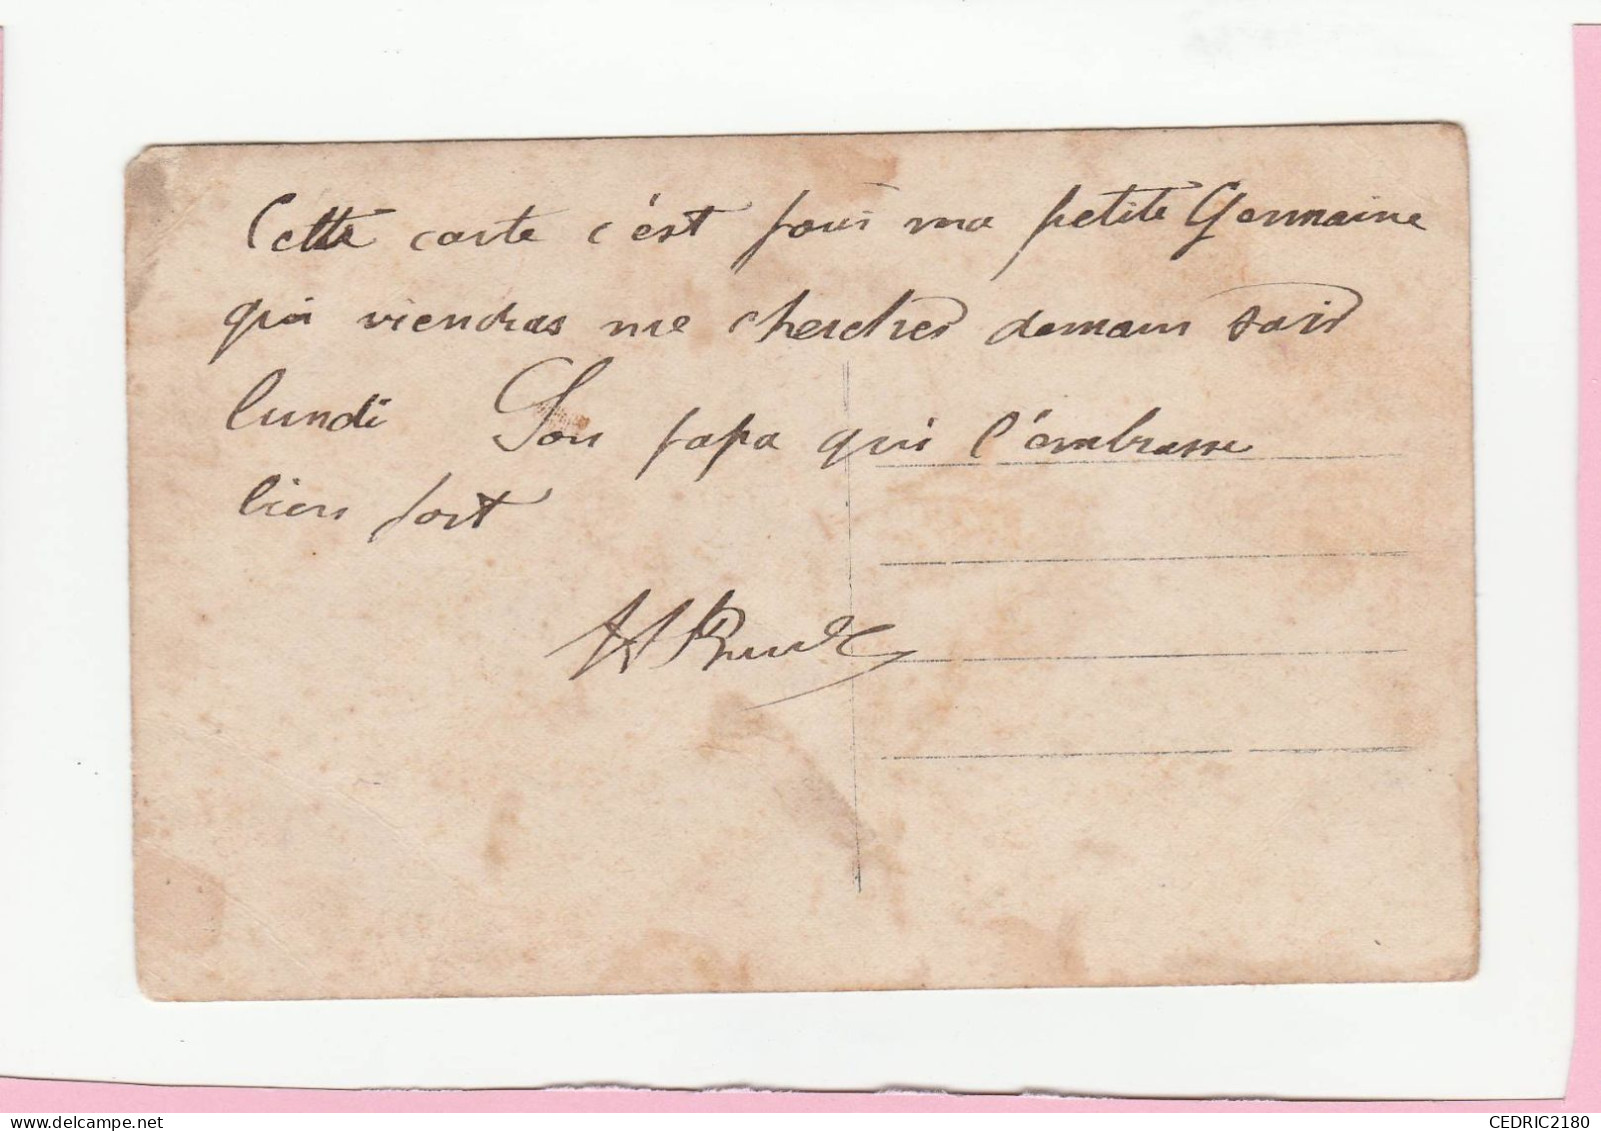 Cette carte c'est pour ma petite Germaine
qui viendras me chercher demain soir
lundi Son papa qui l'embrasse
bien fort
CEDRIC2180